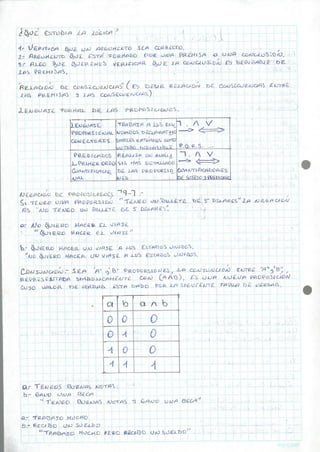 ¿QUÉ ESTUDIA LA LÓGICA?
1- VERIFICA QUE UN ARGUMENTO SEA CORRECTO.
2- ARGUMENTO QUE ESTÁ FORMADO POR UNA PREMISA O UNA CONCLUSIÓN.
3- ALGO QUE QUEREMOS VERIFICAR QUE LA CONCLUSIÓN ES DEDUCIBLE DE
LAS PREMISAS.
RELACIÓN DE CONSECUENCIAS (ES DECIR RELACIÓN DE CONSECUENCIAS ENTRE
LAS PREMISAS Y LAS CONSECUENCIAS)
LENGUAJE FORMAL DE LAS PROPOSICIONES.
LENGUAJE PROPOSICIONAL CONECTORES
TRABAJA A LAS
P.Q.R.S.
PREDICADOS
L. PRIMER ORDEN
DE LAS PROPOSIC
NEGACIÓN DE PROPOSICIONES "¬" :-
SI TENGO UNA PROPOSICIÓN "TENGO UN BILLETE DE 5 DÓLARES" LA NEGACIÓN
ES "NO TENGO UN BILLETE DE 5 DÓLARES".
a: NO QUIERO HACER EL VIAJE
"QUIERO HACER EL VIAJE"
b: QUIERO HACER UN VIAJE A LOS ESTADOS UNIDOS.
"NO QUIERO HACER UN VIAJE A LOS ESTADOS UNIDOS.
CONJUNCIÓN: SEA "A" y "B" PROPOSICIONES, LA CONJUNCIÓN ENTRE "A" y "B",
REPRESENTADA SIMBÓLICAMENTE CON (A∧B), ES UNA NUEVA PROPOSICIÓN
CUYO VALOR DE VERDAD ESTA DADO POR LA SIGUIENTE TABLA DE VERDAD.
a b a ∧ b
0 0 0
0 1 0
1 0 0
1 1 1
a:- TENGO BUENAS NOTAS
b:- GANO UNA BECA
"TENGO BUENAS NOTAS Y GANO UNA BECA"
a:- TRABAJO MUCHO
b:- RECIBO UN SUELDO
"TRABAJO MUCHO PERO RECIBO UN SUELDO"